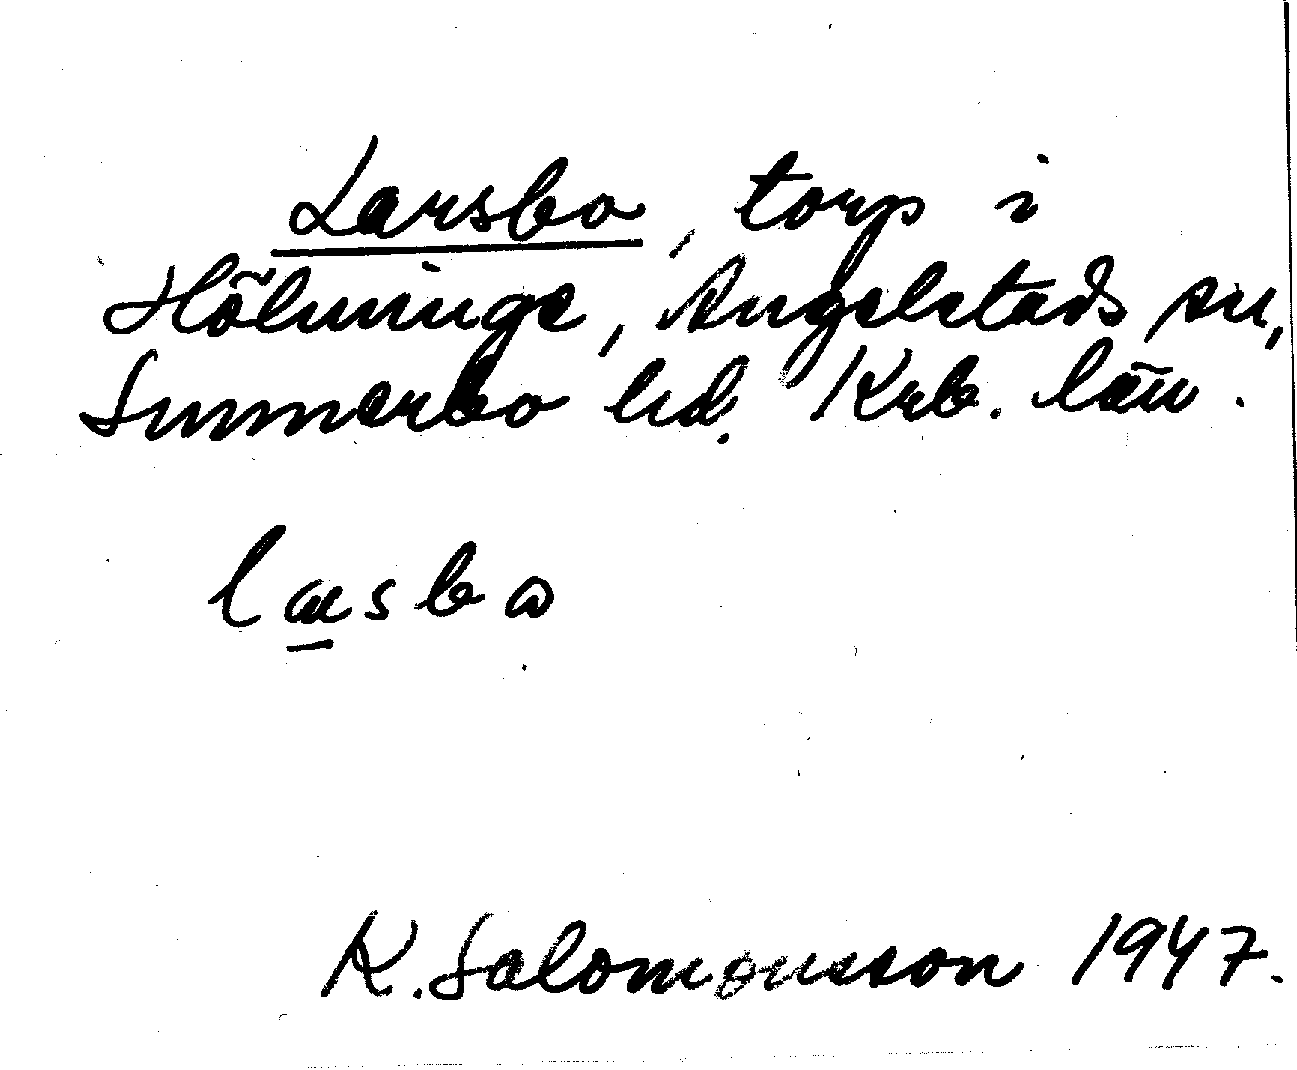 Larsbo, torp i
Hölminge, Angelstads sn,
Sunnerbo hd. Krb. län.
læsbω
K. Salomonsson 1947.